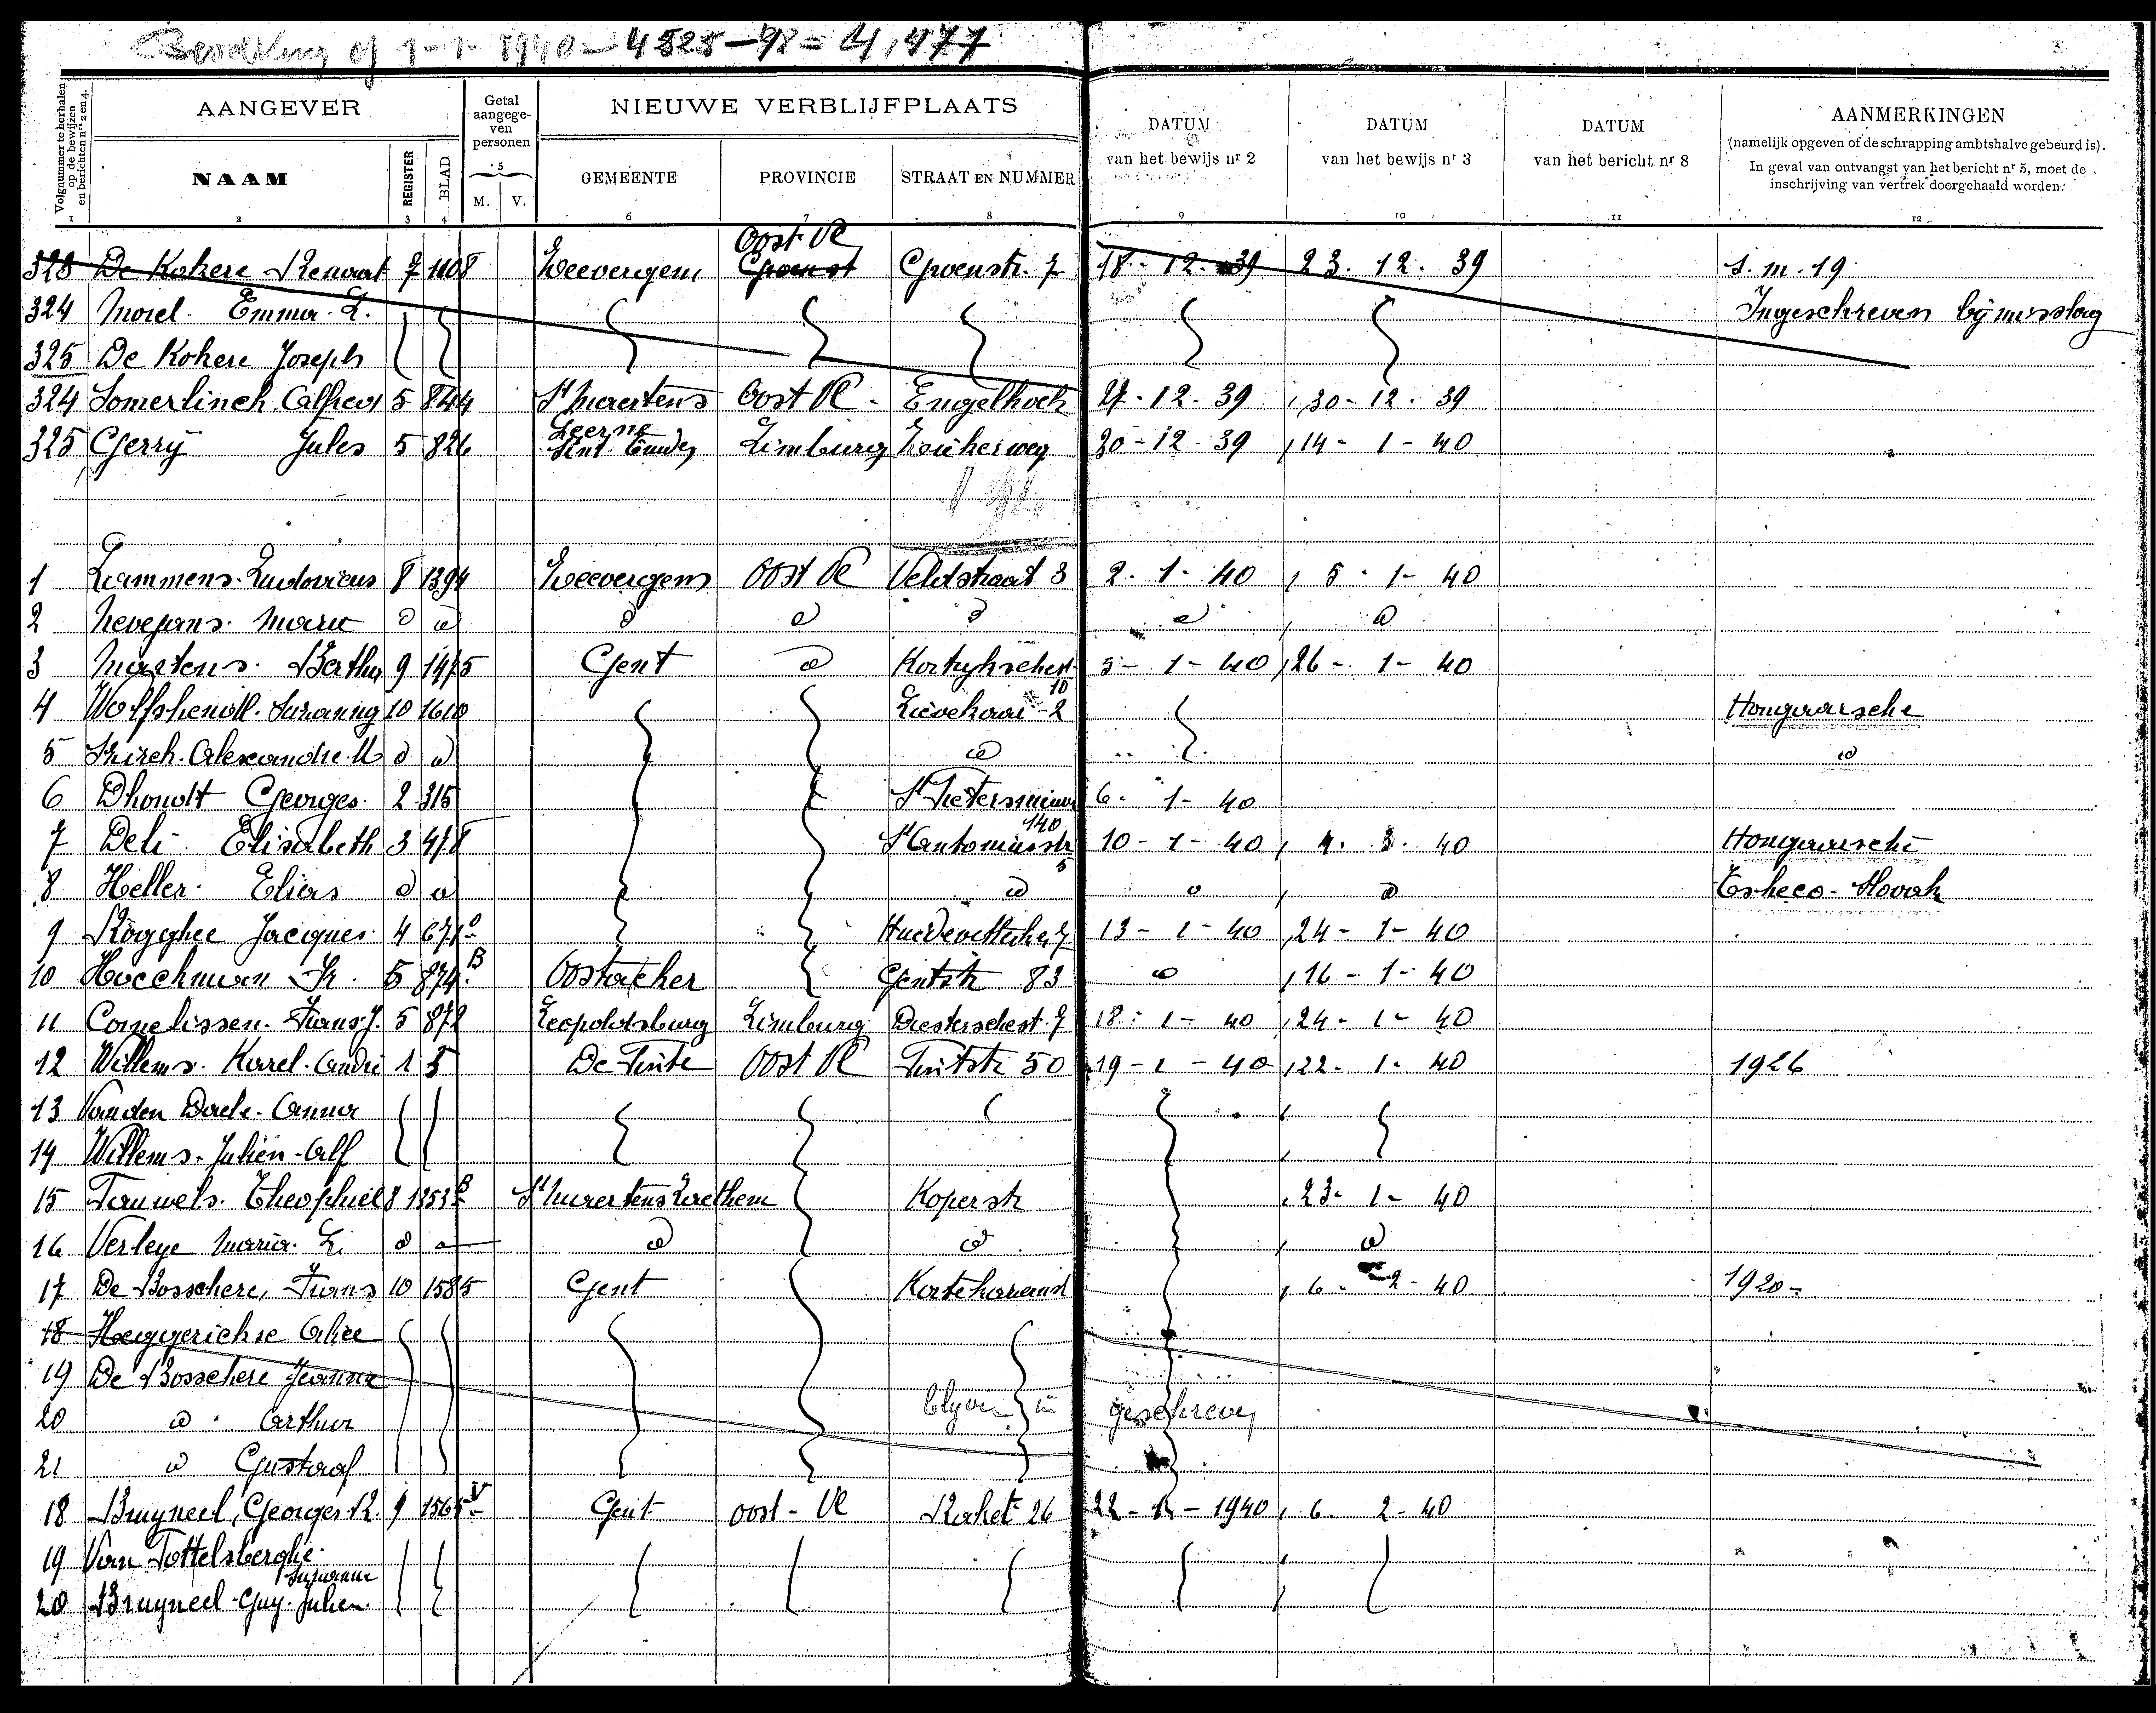 Bevolking op 1-1-1940 — 4525 — 98 = 4,477
Volgnummer te herhalen op de bewijzen en berichten nrs 2 en 4.
AANGEVER
Getal aangegeven personen
NIEUWE VERBLIJFPLAATS
DATUM van het bewijs nr 2
DATUM van het bewijs nr 3
DATUM van het bericht nr 8
AANMERKINGEN
(namelijk opgeven of de schrapping ambtshalve gebeurd is).
In geval van ontvangst van het bericht nr 5, moet de inschrijving van vertrek doorgehaald worden.
NAAM REGISTER BLAD 5 M. V. GEMEENTE PROVINCIE STRAAT EN NUMMER
1 2 3 4 6 7 8 9 10 11 12
Oost-Vl
323 De Kokere 7 1108 Groenstr. 7 18-12-39 23.12.39 s.m.19
324 Morel Emma L. Ingeschreven bij misslag
325 De Kokere Joseph
324 Somerlinck Alfred 5 844 St Maertens Oost Vl. Engelhoek 27-12-39 30-12-39
Leerne
325 Gerry Jules 5 826 Limburg 30-12-39 14-1-40
1 Lammens Ludovicus 8 1394 Oost Vl Veldstraat 3 2-1-40 5-1-40
2 Nevejans Marie d d d d d d d
3 Martens Bertha 9 1475 Gent d 5-1-40 26-1-40
10
4 10 1610 Lievekaai 2 Hongaarsche
5 Alexandre M d d d d
6 Dhondt Georges 2 315 St Pietersnieuw 6-1-40
140
7 Deli Elisabeth 3 478 St Antoniusstr 10-1-40 4.3.40 Hongaarsche
5
8 Heller Elias d d d d d Tsheco-Slovak
9 Rogghe Jacques 4 671 13-1-40 24-1-40
10 5 874 B Oostacker Gentstr 83 d 16-1-40
11 Cornelissen Frans J. 5 872 Leopoldsburg Limburg Diestschest. 7 18-1-40 24-1-40
12 Willems Karel André 1 5 De Pinte Oost Vl Pintstr 50 19-1-40 22-1-40 1926
13 Vanden Daele Anna
14 Willems Julien Alf
15 Pauwels Theophiel 8 1353 B St Maertens Laethem Koperstr 23-1-40
16 Verleye Maria L. d d d d d
17 De Bosschere, Frans 10 1585 Gent 6-2-40 1920-
18 Alice
19 De Bosschere Jeanne
20 d Arthur blijven in geschreven
21 d Gustaaf
18 Bruyneel, Georges R. 9 1565 V Gent oost-Vl Raket 26 22-1-1940 6-2-40
19 Van Pottelsberghe
Suzanne
20 Bruyneel Guy Julien